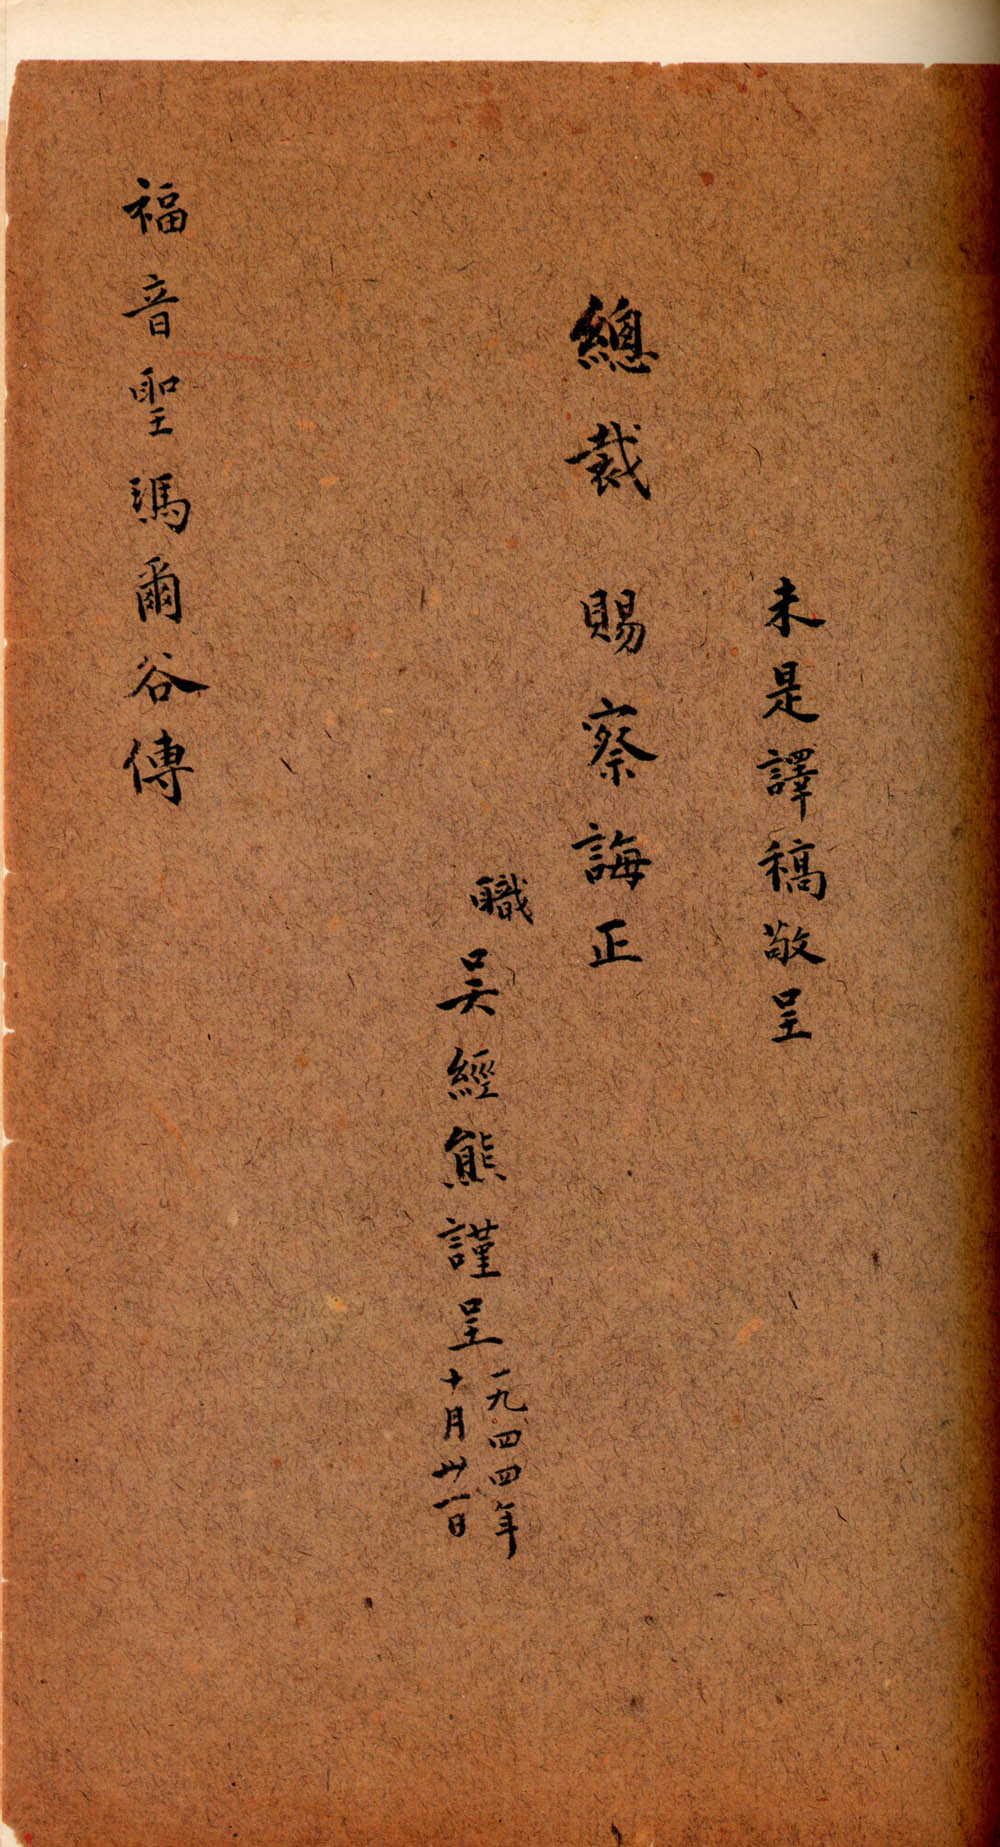 未是譯稿敬呈
總裁賜察誨正
職吳經熊謹呈
一九四四年
十月卅一日
福音聖瑪爾谷傳